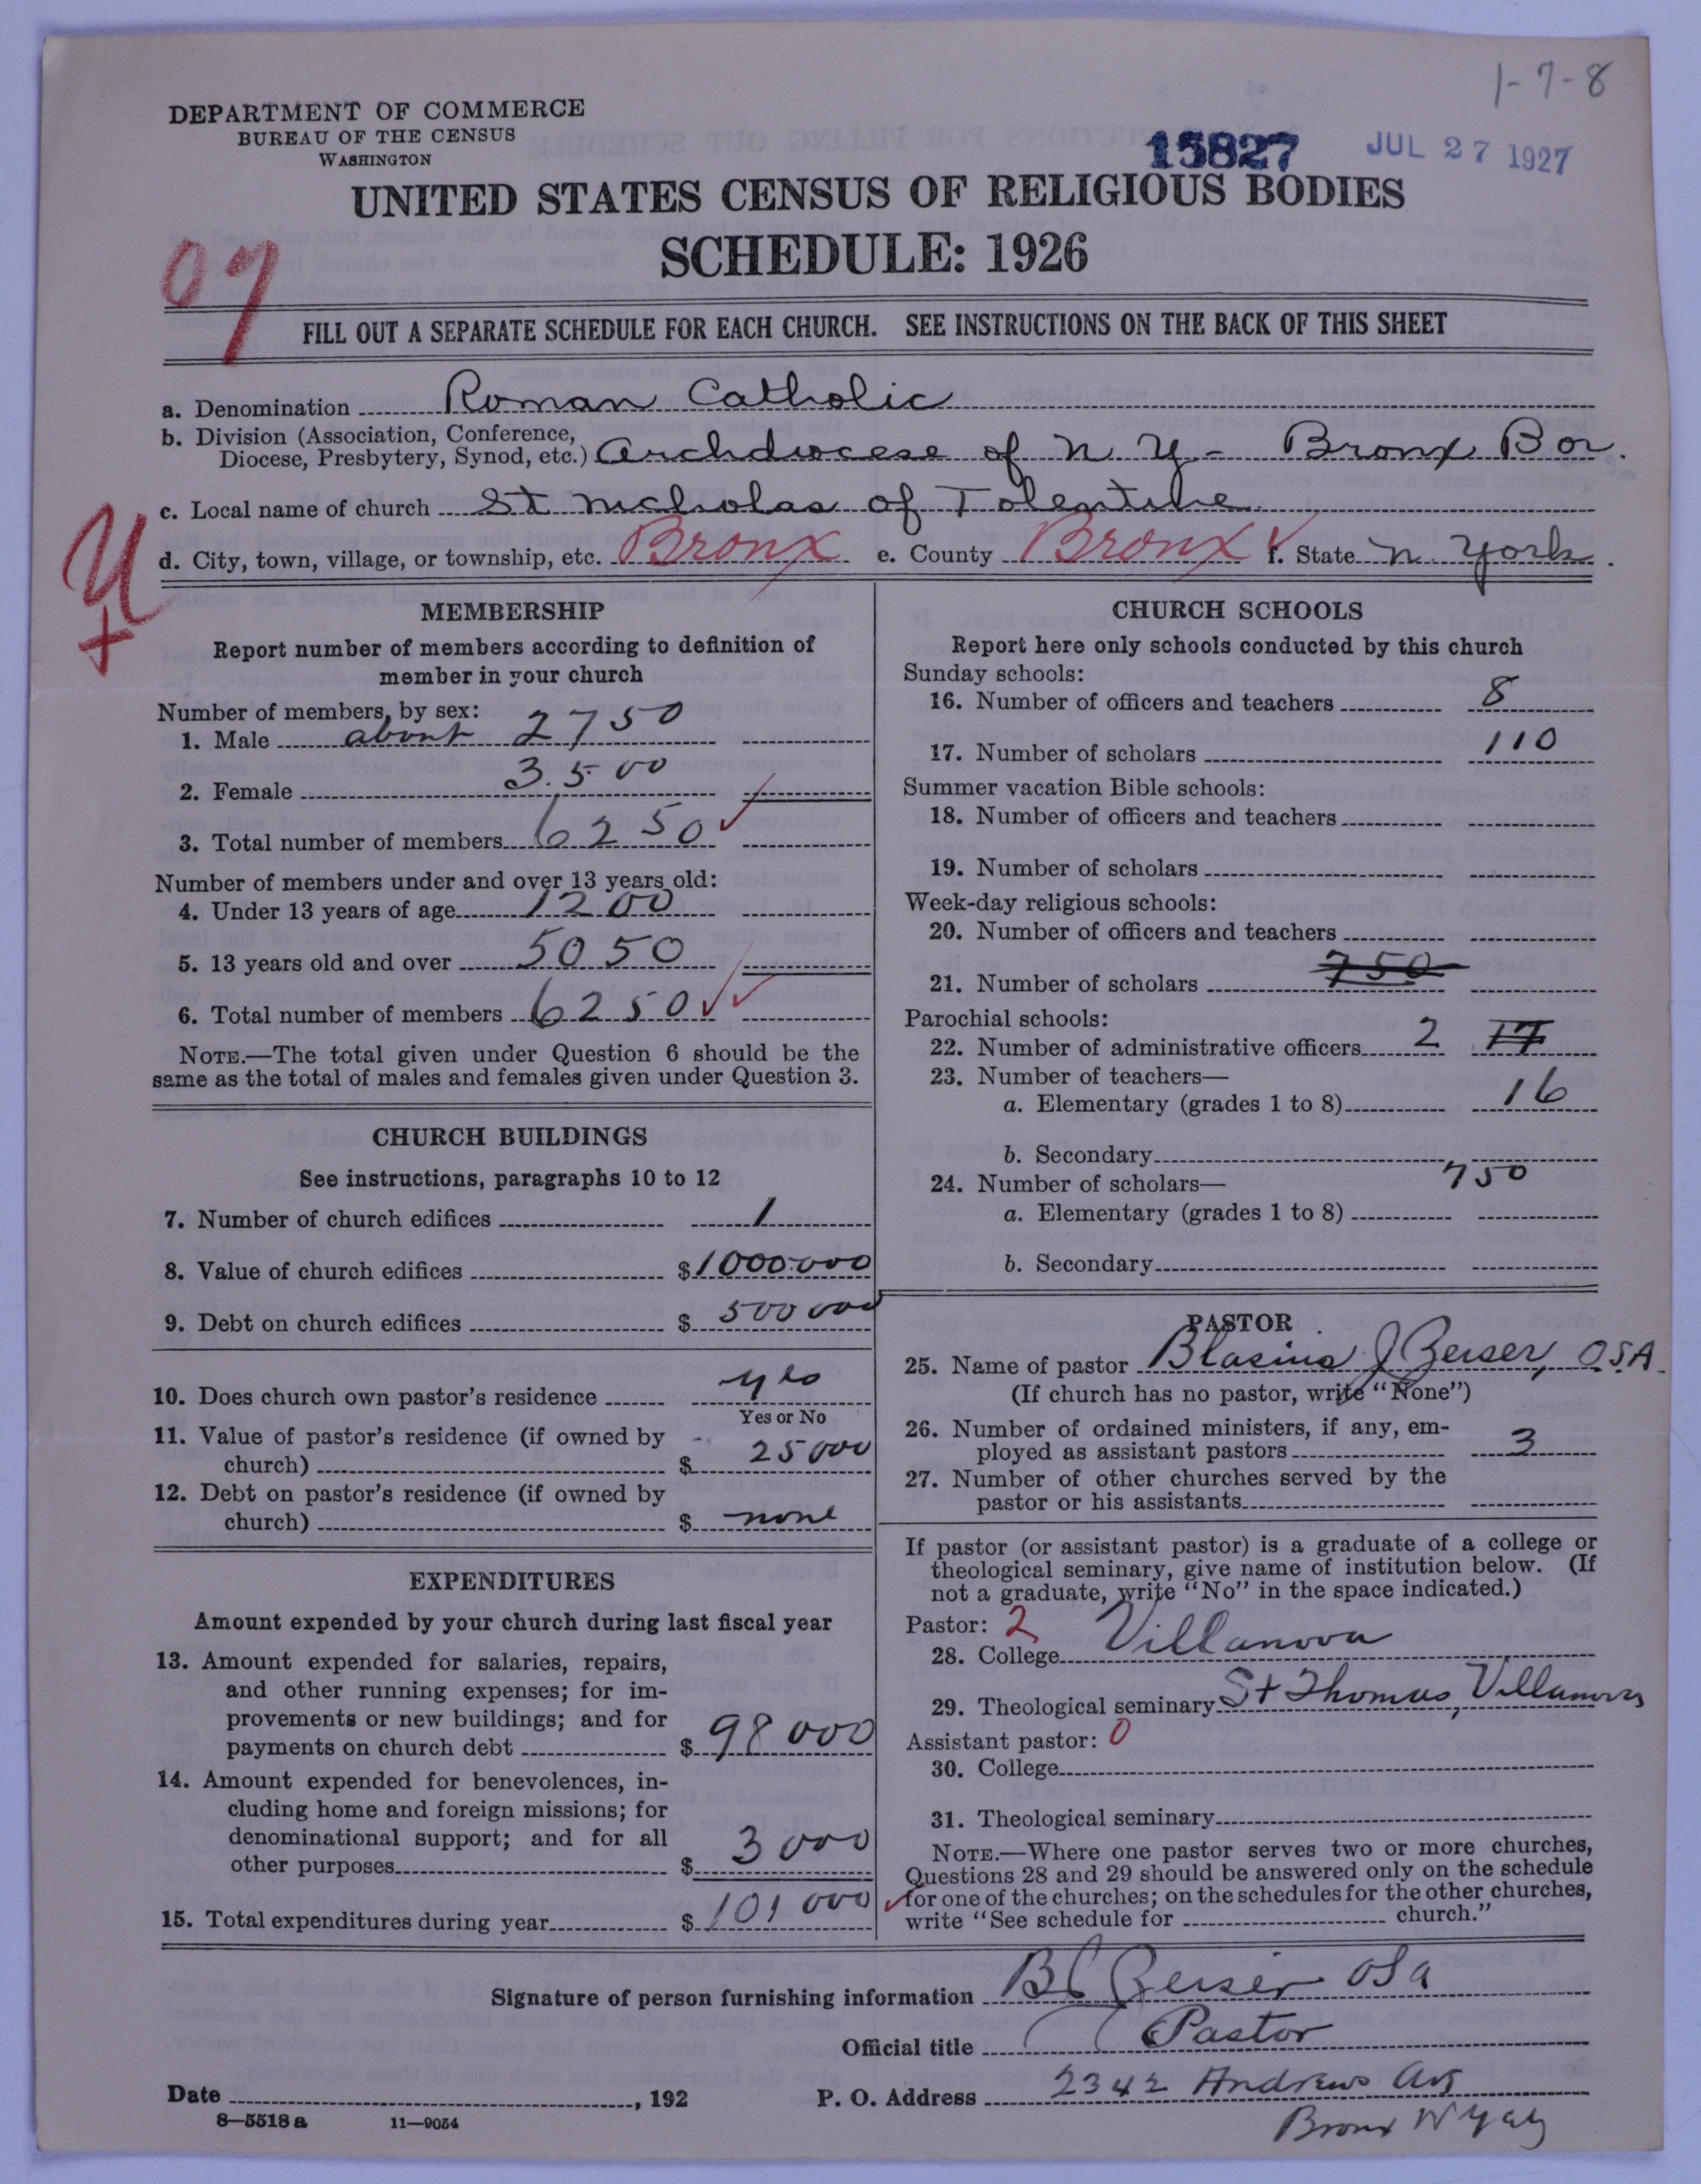 1-7-8
DEPARTMENT OF COMMERCE
BUREAU OF THE CENSUS
WASHINGTON
15827 JUL 27 1927
UNITED STATES CENSUS OF RELIGIOUS BODIES
SCHEDULE: 1926
07
FILL OUT A SEPARATE SCHEDULE FOR EACH CHURCH. SEE INSTRUCTIONS ON THE BACK OF THIS SHEET
a. Denomination Roman Catholic
b. Division (Association, Conference,
Diocese, Presbytery, Synod, etc.) Archdiocese of N Y - Bronx Bor.
c. Local name of church St Nicholas of Tolentine
d. City, town, village, or township, etc. Bronx e. County Bronx f. State N. York
MEMBERSHIP
Report number of members according to definition of
member in your church
Number of members, by sex:
1. Male about 2750
2. Female 3500
3. Total number of members 6250
Number of members under and over 13 years old:
4. Under 13 years of age 1200
5. 13 years old and over 5050
6. Total number of members 6250
NOTE.—The total given under Question 6 should be the
same as the total of males and females given under Question 3.
CHURCH BUILDINGS
See instructions, paragraphs 10 to 12
7. Number of church edifices 1
8. Value of church edifices $1000.000
9. Debt on church edifices $ 500 000
10. Does church own pastor's residence yes
Yes or No
11. Value of pastor's residence (if owned by
church) $ 25000
12. Debt on pastor's residence (if owned by
church) $ none
EXPENDITURES
Amount expended by your church during last fiscal year
13. Amount expended for salaries, repairs,
and other running expenses; for im-
provements or new buildings; and for
payments on church debt $ 98 000
14. Amount expended for benevolences, in-
cluding home and foreign missions; for
denominational support; and for all
other purposes $ 3 000
15. Total expenditures during year $ 101 000
CHURCH SCHOOLS
Report here only schools conducted by this church
Sunday schools:
16. Number of officers and teachers 8
17. Number of scholars 110
Summer vacation Bible schools:
18. Number of officers and teachers
19. Number of scholars
Week-day religious schools:
20. Number of officers and teachers
21. Number of scholars 750
Parochial schools:
22. Number of administrative officers 2 17
23. Number of teachers—
a. Elementary (grades 1 to 8) 16
b. Secondary
24. Number of scholars— 750
a. Elementary (grades 1 to 8)
b. Secondary
PASTOR
25. Name of pastor Blasius J Zeiser, OSA
(If church has no pastor, write "None")
26. Number of ordained ministers, if any, em-
ployed as assistant pastors 3
27. Number of other churches served by the
pastor or his assistants
If pastor (or assistant pastor) is a graduate of a college or
theological seminary, give name of institution below. (If
not a graduate, write "No" in the space indicated.)
Pastor: 2
28. College Villanova
29. Theological seminary St Thomas, Villanova
Assistant pastor: 0
30. College
31. Theological seminary
NOTE.—Where one pastor serves two or more churches,
Questions 28 and 29 should be answered only on the schedule
for one of the churches; on the schedules for the other churches,
write "See schedule for church."
Signature of person furnishing information BJ Zeiser OSA
Official title Pastor
Date , 192 P. O. Address 2342 Andrews Av
8—5518 a 11—9054
Bronx